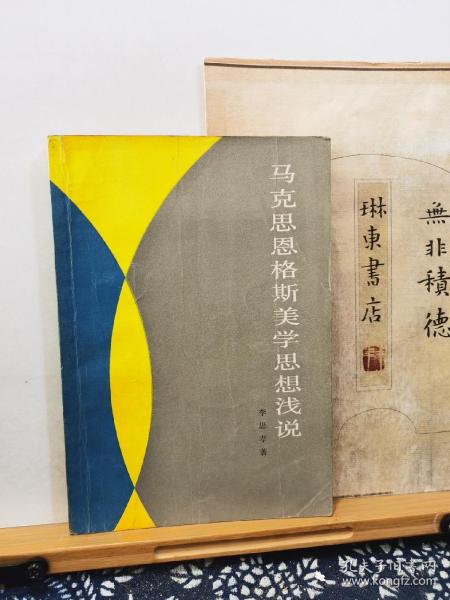 马克思恩格斯美学思想浅说
李思孝著
無非積德
琳東書店
孔夫子旧书网
www.kongfz.com